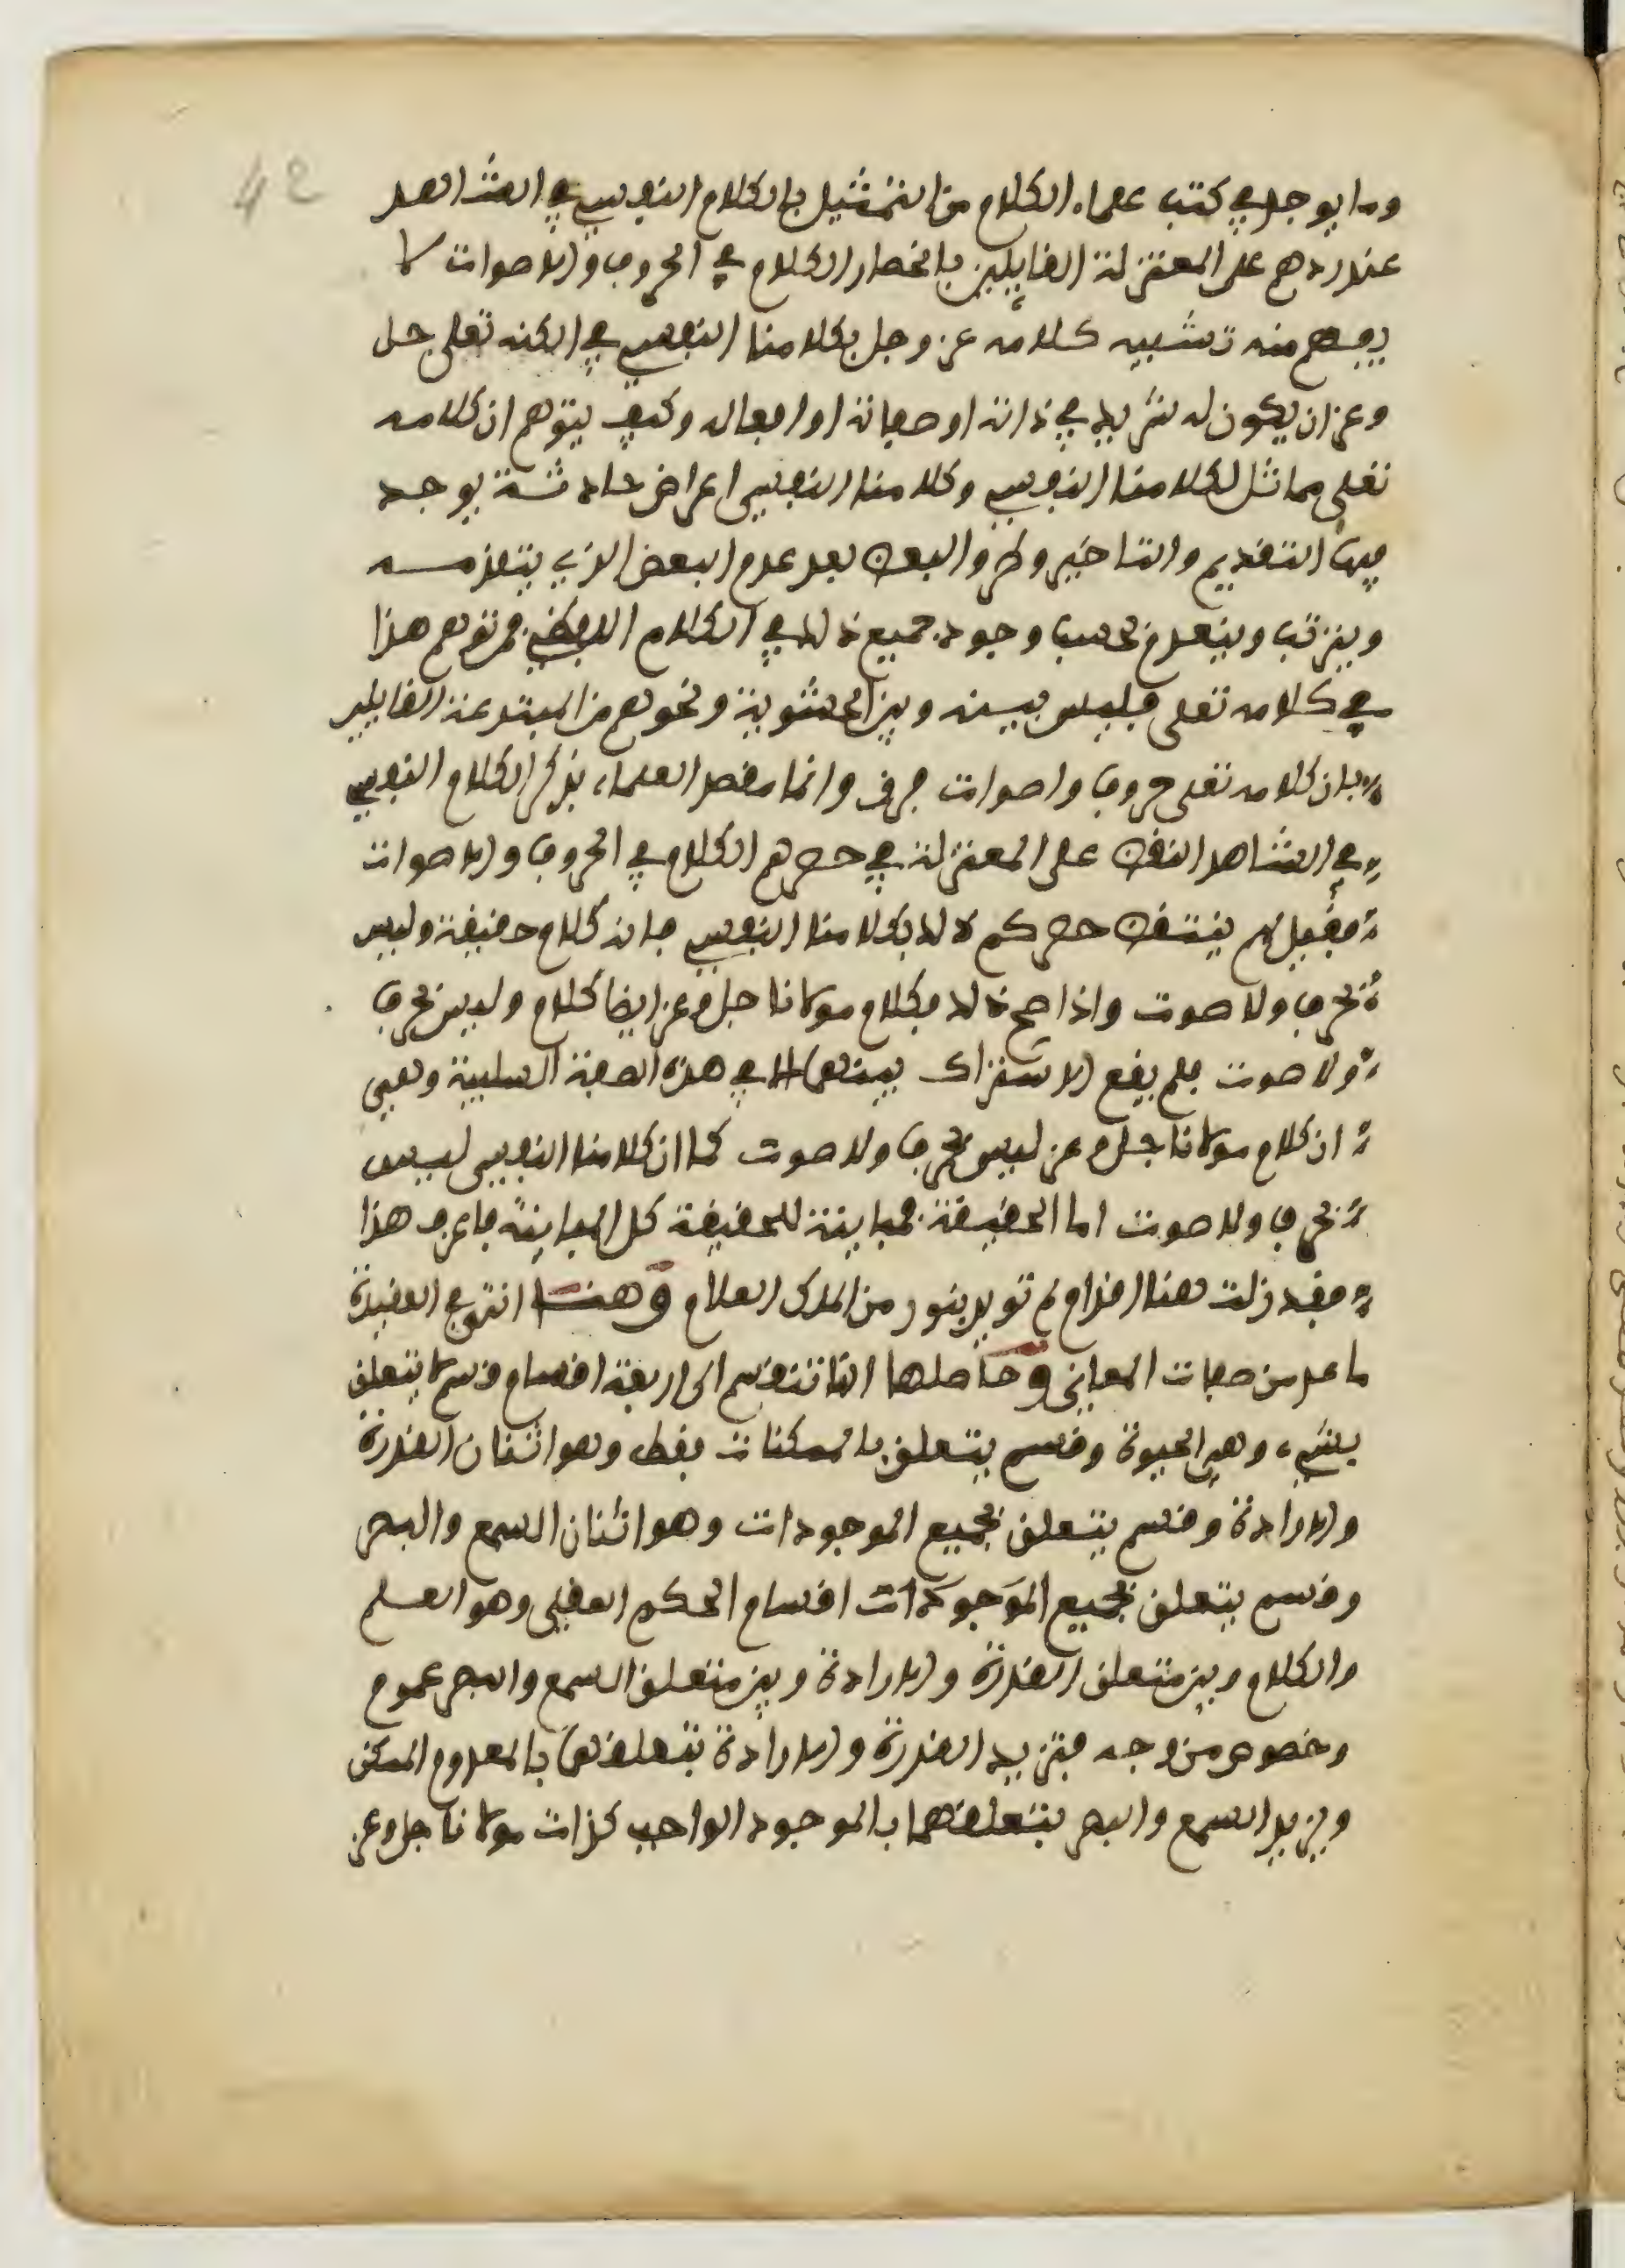 42
وما يوجد في كتب علماء الكلام من التمثيل بالكلام النفسي في الشاهد
عند ردهم على المعتزلة القايلين بانحصار الكلام في الحروف والاصوات لا
يفهم منه تشبيه كلامه عز وجل بكلامنا النفسي في الكنه تعلى جل
وعز ان يكون له شريك في ذاته او صفاته او افعاله وكيف يتوهم ان كلامه
تعلى مماثل لكلامنا النفسي وكلامنا النفسي اعراض حادثة يوجد
فيها التقديم والتاخير وطرو البعض بعد عدم البعض الذي يتقدمه
ويترتب وينعدم بحسب وجود جميع ذلك في الكلام اللفظي فمن توهم هذا
في كلامه تعلى فليس بينه وبين الحشوية ونحوهم من المبتدعة القايلين
بان كلامه تعلى حروف واصوات فرق وانما مقصد العلماء بذكر الكلام النفسي
في الشاهد النقض على المعتزلة في حصرهم الكلام في الحروف والاصوات
فقيل لهم ينتقض حصركم ذلك بكلامنا النفسي فانه كلام حقيقة وليس
بحرف ولا صوت واذا صح ذلك فكلام مولانا جل وعز ايضا كلام وليس بحرف
ولا صوت فلم يقع الاشتراك بينهما الا في هذه الصفة السلبية وهي
ان كلام مولانا جل وعز ليس بحرف ولا صوت كما ان كلامنا النفسي ليس
بحرف ولا صوت اما الحقيقة فمباينة للحقيقة كل المباينة فاعرف هذا
فقد زلت هنا اقدام لم تويد بنور من الملك العلام وهنا انتهى في العقيدة
ما عد من صفات المعاني وحاصلها انها تنقسم الى اربعة اقسام قسم لا يتعلق
بشيء وهي الحيوة وقسم يتعلق بالممكنات فقط وهو اثنان القدرة
والارادة وقسم يتعلق بجميع الموجودات وهو اثنان السمع والبصر
وقسم يتعلق بجميع الموجودات اقسام الحكم العقلي وهو العلم
والكلام وبين متعلق القدرة والارادة وبين متعلق السمع والبصر عموم
وخصوص من وجه فتزيد القدرة والارادة بتعلقهما بالمعدوم الممكن
ويزيد السمع والبصر بتعلقهما بالموجود الواجب كذات مولانا جل وعز